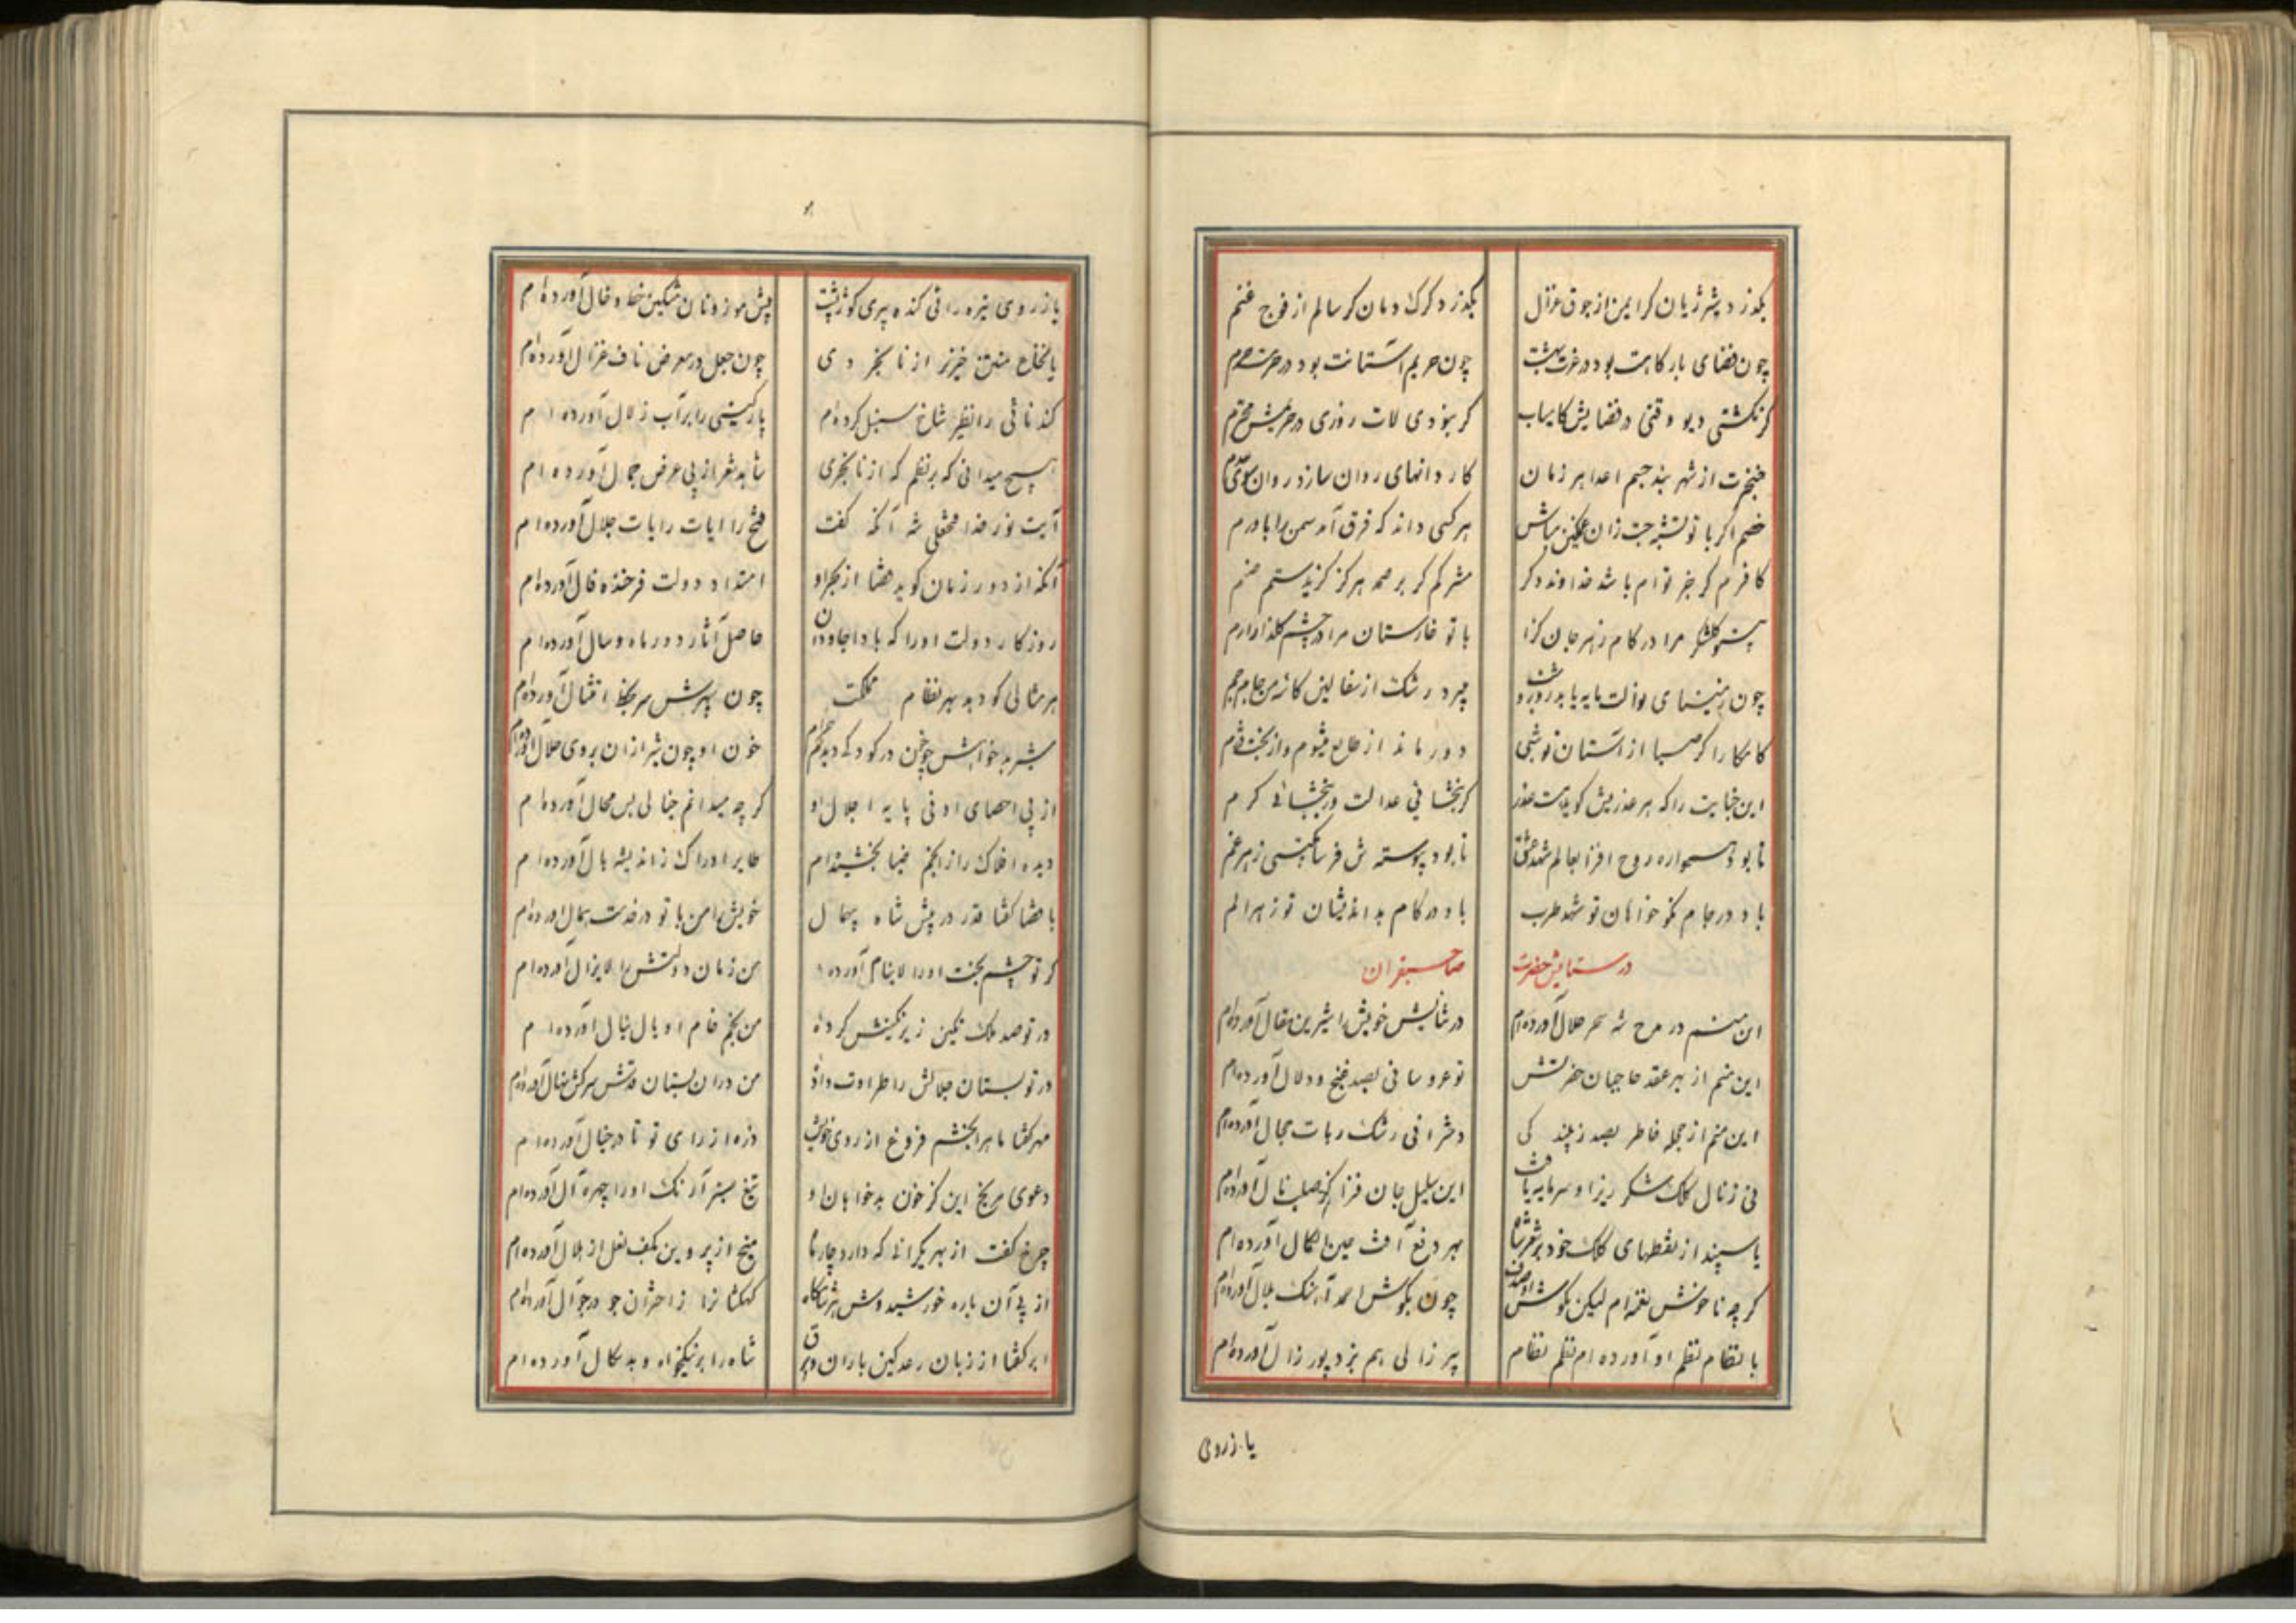 بگذرد شیر ژیان گر ایمن از جوق غزال بگذرد گرگ دمان گر سالم از فوج غنم
چون فضای بارگاهت بود در عزت بهشت چون حریم آستانت بود در حرمت حرم
گر نگشتی دیو وقتی در فضایش کامیاب گر نبودی لات روزی در حریمش محترم
خنجرت از شهر بند جسم اعدا هر زمان کاروانهای روان سازد روان سوی عدم
خصم اگر با تو تشبه جست زان غمگین مباش هر کسی داند که فرق آمد سمن را با ورم
کافرم گر جز توام باشد خداوند دگر مشرکم گر بر صمد هرگز گزیدستم صنم
بی تو گلشکر مرا در کام زهر جان گزا با تو خارستان مرا در چشم گلزار ارم
چون ز مینای نوالت مایه یابد روز و شب میبرد رشک از سفالین کاسه من جام جم
کامکارا گر صبا از آستان توشبی دور ماند از طالع میشوم و از بخت دژم
این جنایت را که هر عذریش گویند هست عذر گر نبخشائی عدالت ور ببخشائی کرم
تا بود همواره روح افزا بعالم شهد عشق تا بود پیوسته ش فرسا بگیتی زهر غم
باد در جام نکو خواهان تو شهد طرب باد در کام بداندیشان تو زهر الم
در ستایش حضرت صاحبقران
این منم در مدح شه سحر حلال آورده‌ام در ثنایش خویش را شیرین مقال آورده‌ام
این منم از بهر عقد حاجبان حضرتش نو عروسانی بصد غنج و دلال آورده‌ام
این منم از حجله خاطر بصد زیبندگی دخترانی رشک ربات حجال آورده‌ام
نی ز نال کلک شکر ریز او سرمایه یافت این سلیل جان فزا کز صلب نال آورده‌ام
یا سپند از نقطهای کلک خود بر شعر شاه بهر دفع آفت عین الکمال آورده‌ام
گر چه ناخوش نغمه‌ام لیکن بگوش او صدف چون بگوش احمد آهنگ بلال آورده‌ام
با نظام نظم او آورده‌ام نظم نظام پیر زالی هم نبرد پور زال آورده‌ام
یا ز روی
یا ز روی تیره رائی گنده پیری کوژپشت پیش موزونان مشکین خط و خال آورده‌ام
یا نخاع منتن خیز از نابخردی چون جعل در معرض ناف غزال آورده‌ام
گندنائی را نظیر شاخ سنبل کرده‌ام پارگینی را بر آب زلال آورده‌ام
هیچ میدانی که بر نظم که از نابخردی شاهد شعر از پی عرض جمال آورده‌ام
آیت نور خدا فتحعلی شه آنکه گفت فتح را آیات رایات جلال آورده‌ام
آنکه از دور زمان گوید قضا از بهر او امتداد دولت فرخنده فال آورده‌ام
روزگار دولت او را که بادا جاودان حاصل آثار دور ماه و سال آورده‌ام
هر مثالی کو دهد بهر نظام مملکت چون سپهرش سر بخط امتثال آورده‌ام
شیر بدخواهش چو خون در کودکی دیدم حرام خون او چون شیر از آن بروی حلال آورده‌ام
از پی احصای ادنی پایه اجلال او گر چه میدانم خیالی بس محال آورده‌ام
دیده افلاک را از انجم ضیا بخشیده‌ام طایر ادراک را ز اندیشه بال آورده‌ام
با قضا گفتا قدر در پیش شاه بیهمال خویش را من با تو در خدمت همال آورده‌ام
گر تو چشم بخت او را لاینام آورده من زمان دولتش را لایزال آورده‌ام
در تو صد ملک نگین زیر نگینش کرده من بختم خام او بال نبال آورده‌ام
در تو بستان جلالش را طراوت داده من در آن بستان قدش سرکش نهال آورده‌ام
مهر گفتا ماهرا بخشم فروغ از روی خویش ذره از رای تو تا در خیال آورده‌ام
دعوی مریخ این کز خون بدخواهان او تیغ سبز آرنگ او را چهره آل آورده‌ام
چرخ گفت از بهر یکرانی که دارد چارنا میخ از پروین بکف نعل از هلال آورده‌ام
از پی آن باره خورشیدوش هر شامگاه کهکشانرا ز اختران جو در جوال آورده‌ام
ابر گفتا از زبان رعد کین باران و برق شاه را بر نیکخواه و بدسگال آورده‌ام